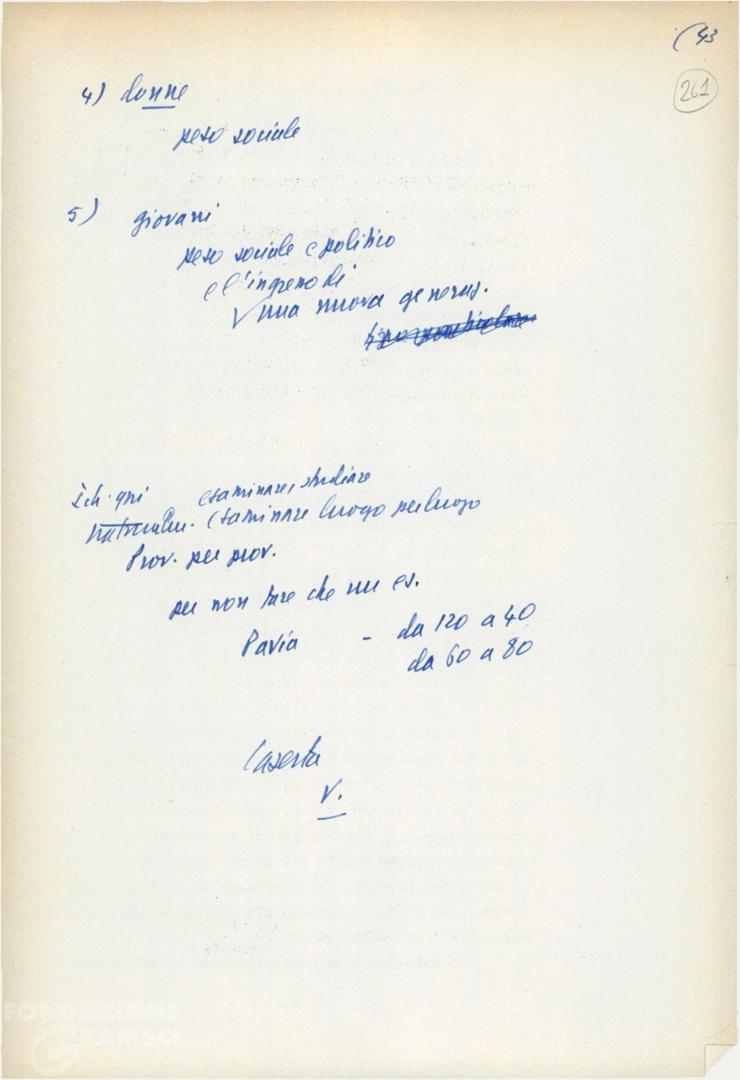 (43
261
4) donne
peso sociale
5) giovani
peso sociale e politico
e l'ingresso di
una nuova generaz.
esaminare, studiare
esaminare luogo per luogo
Prov. per prov.
per non fare che un es.
Pavia - da 120 a 40
da 60 a 80
Caserta
V.
FONDAZIONE
GRAMSCI